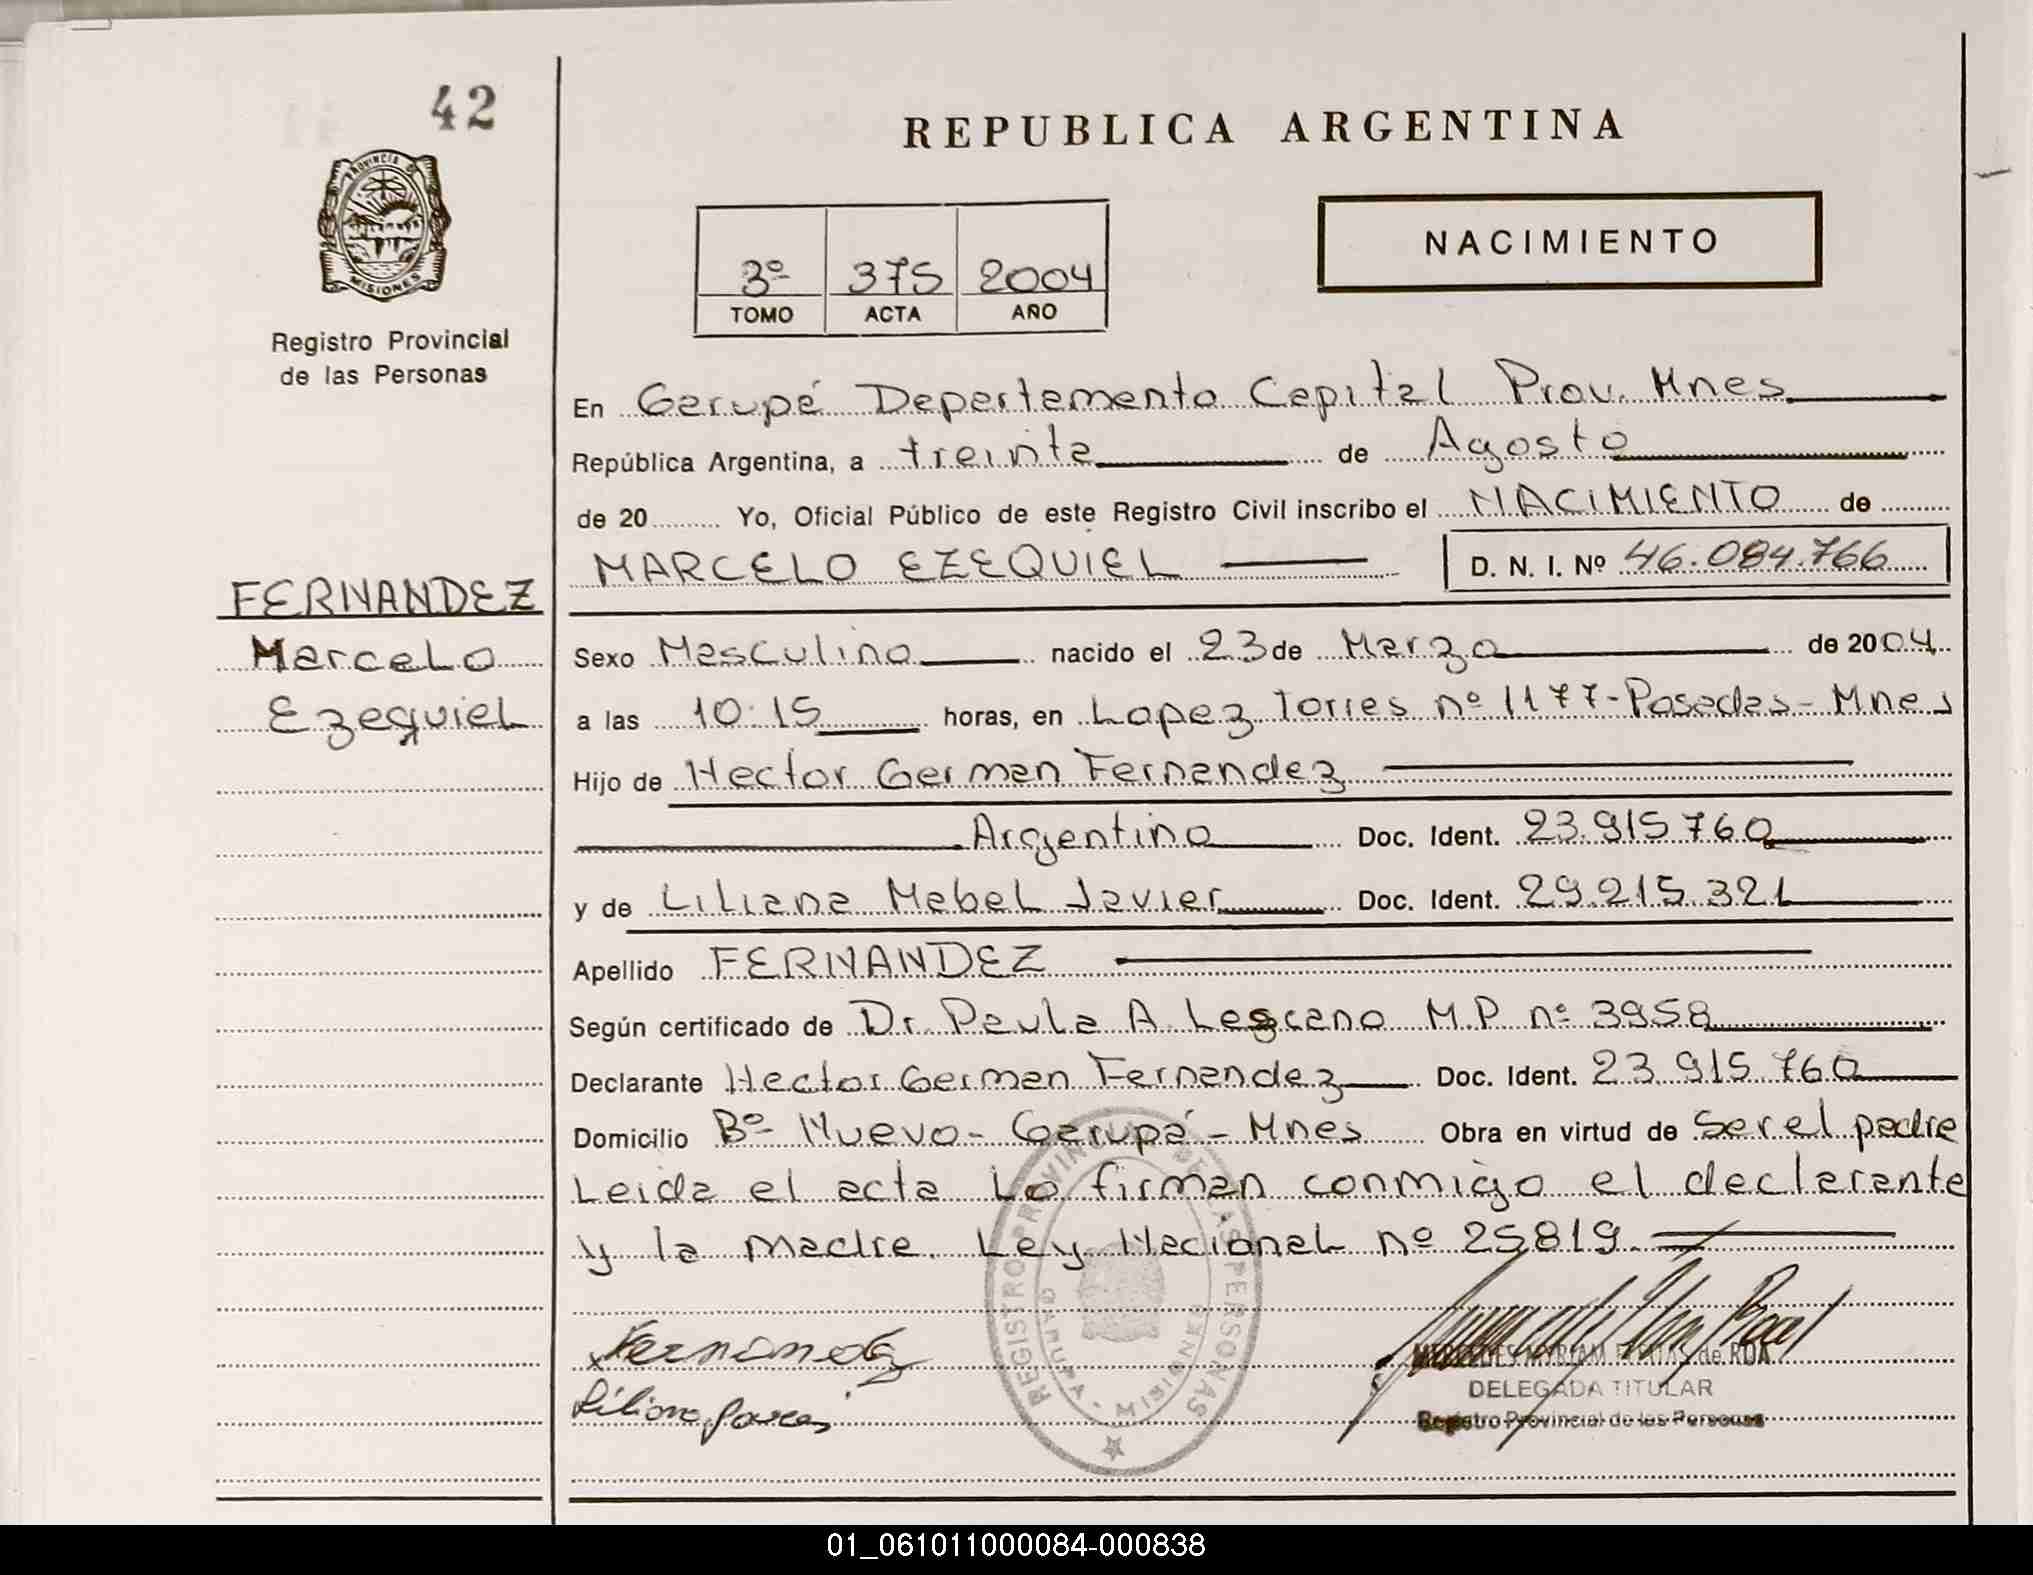 42
REPUBLICA ARGENTINA
PROVINCIA DE
MISIONES
Registro Provincial
de las Personas
NACIMIENTO
3º 375 2004
TOMO ACTA AÑO
En Garupá Departamento Capital Prov. Mnes
República Argentina, a treinta de Agosto
de 20 Yo, Oficial Público de este Registro Civil inscribo el NACIMIENTO de
MARCELO EZEQUIEL D. N. I. Nº 46.084.766
FERNANDEZ
Marcelo
Ezequiel
Sexo Masculino nacido el 23 de Marzo de 2004
a las 10:15 horas, en Lopez Torres nº 1177-Posadas-Mnes
Hijo de Hector German Fernandez
Argentino Doc. Ident. 23.915.760
y de Liliana Mabel Javier Doc. Ident. 29.215.321
Apellido FERNANDEZ
Según certificado de Dr. Paula A. Lezcano M.P. nº 3958
Declarante Hector German Fernandez Doc. Ident. 23.915.760
Domicilio Bº Nuevo- Garupá- Mnes Obra en virtud de Ser el padre
Leida el acta Lo firman conmigo el declarante
y la madre. Ley Nacional nº 25819.
REGISTRO PROVINCIAL DE LAS PERSONAS
GARUPA - MISIONES
Fernandez
Liliana
MERCEDES MYRIAM de ROA
DELEGADA TITULAR
Registro Provincial de las Personas
01_061011000084-000838